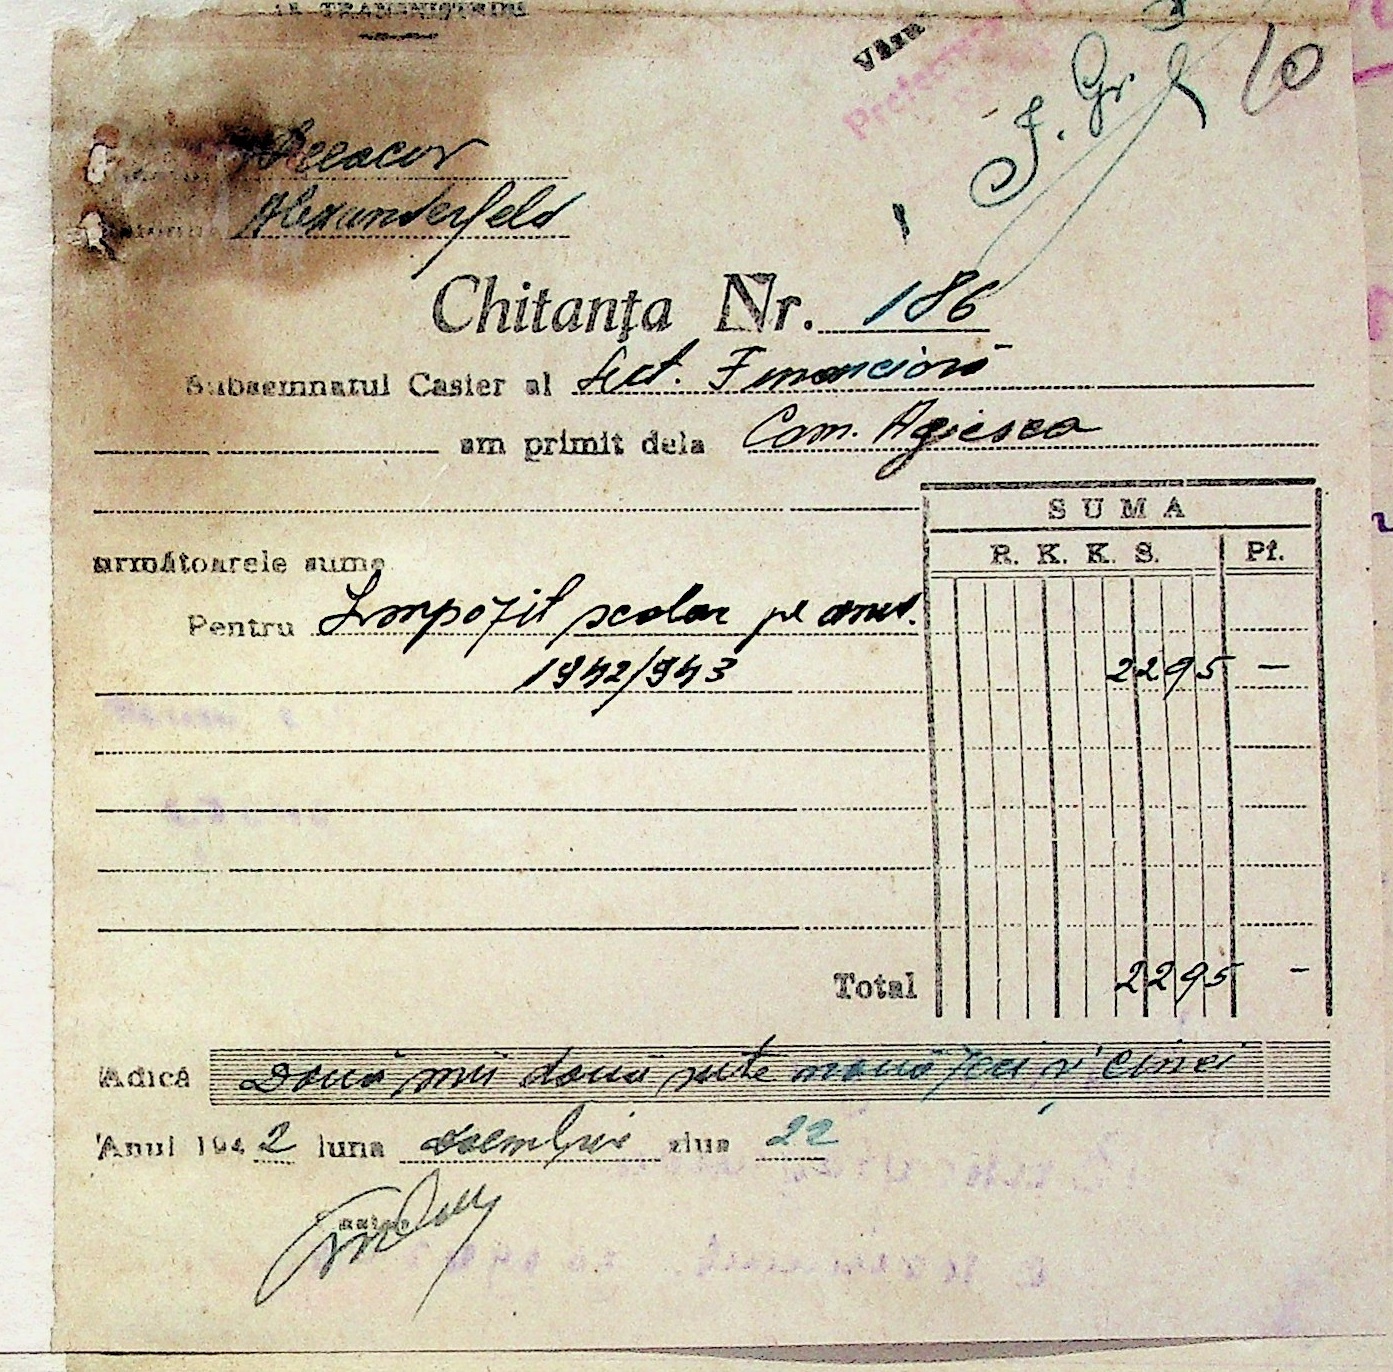 AL TRANSNISTRIEI
Văzut
J. Gr. 10
Alexanderfeld
Chitanţa Nr. 186
Subsemnatul Casier al Sect. Financiară
am primit dela Com. Agiesca
SUMA
următoarele sume
R. K. K. S. Pf.
Pentru Impozit scolar pe anul.
1942/943 2295 —
Total 2295 -
Adică Două mii două sute nouă zeci și cinci
Anul 1942 luna Decembrie ziua 22